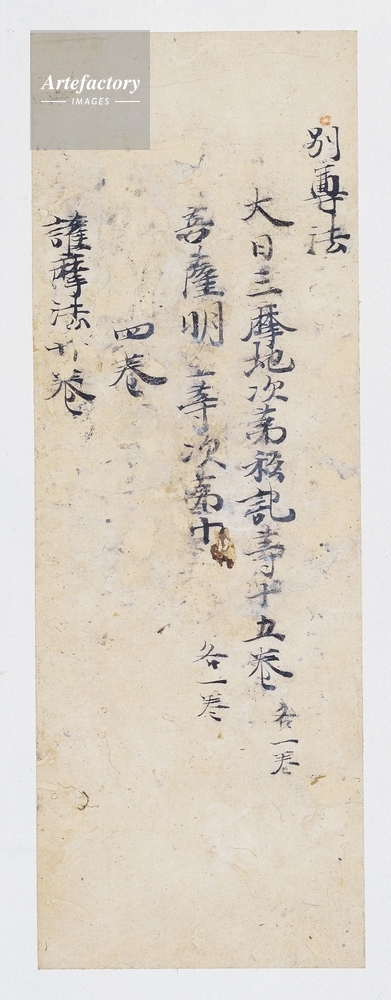 別尊法
大日三摩地次第私記等十五巻
各一巻
菩薩明王等次第十
各一巻
四巻
護摩法十巻
Artefactory
IMAGES